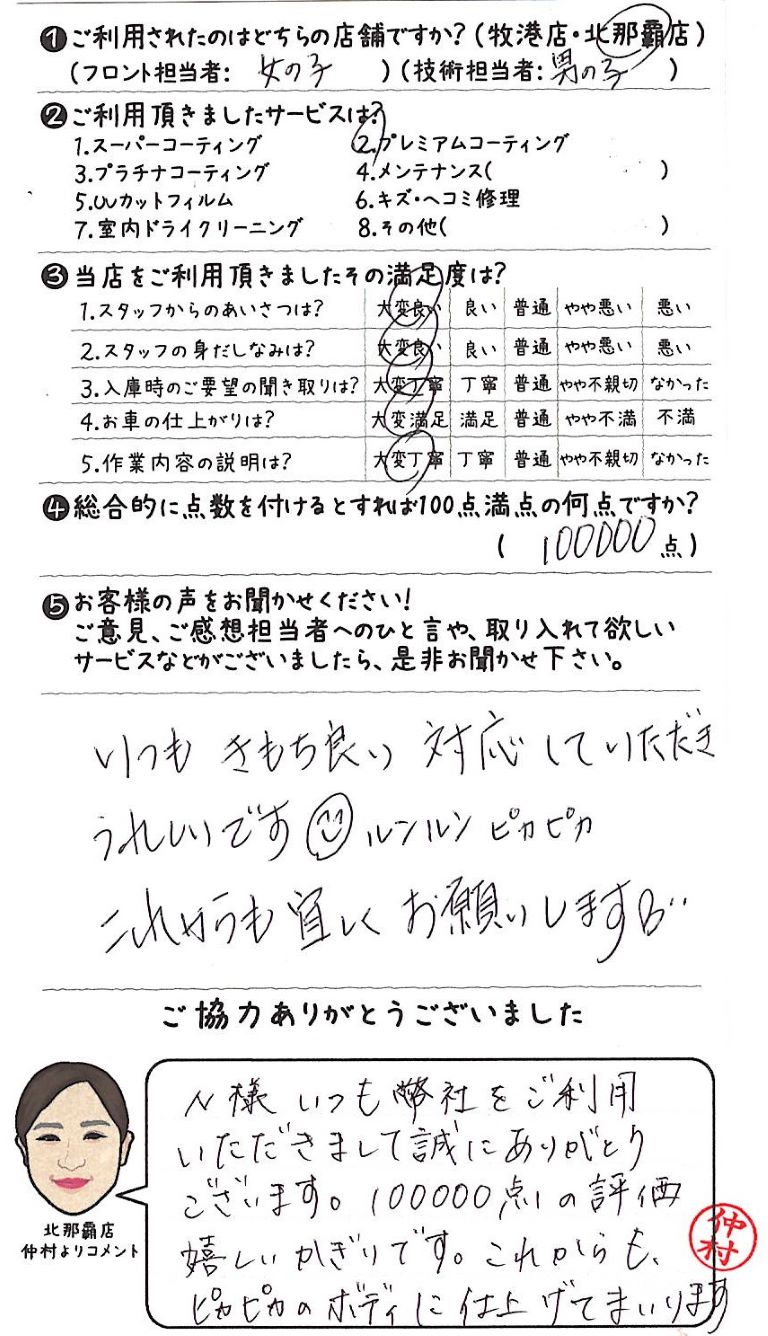 ❶ご利用されたのはどちらの店舗ですか?(牧港店・北那覇店)
(フロント担当者: 女の子 )(技術担当者:男の子 )
❷ご利用頂きましたサービスは?
1.スーパーコーティング 2.プレミアムコーティング
3.プラチナコーティング 4.メンテナンス( )
5.UVカットフィルム 6.キズ・ヘコミ修理
7.室内ドライクリーニング 8.その他( )
❸当店をご利用頂きましたその満足度は?
1.スタッフからのあいさつは? 大変良い 良い 普通 やや悪い 悪い
2.スタッフの身だしなみは? 大変良い 良い 普通 やや悪い 悪い
3.入庫時のご要望の聞き取りは? 大変丁寧 丁寧 普通 やや不親切 なかった
4.お車の仕上がりは? 大変満足 満足 普通 やや不満 不満
5.作業内容の説明は? 大変丁寧 丁寧 普通 やや不親切 なかった
❹総合的に点数を付けるとすれば100点満点の何点ですか?
( 100000点)
❺お客様の声をお聞かせください!
ご意見、ご感想担当者へのひと言や、取り入れて欲しい
サービスなどがございましたら、是非お聞かせ下さい。
いつも きもち良い 対応していただき
うれしいです ルンルン ピカピカ
これからも宜しく お願いします
ご協力ありがとうございました
N様 いつも弊社をご利用
いただきまして誠にありがとう
ございます。100000点!の評価
嬉しいかぎりです。これからも、
ピカピカのボディに仕上げてまいります
北那覇店
仲村よりコメント
仲村